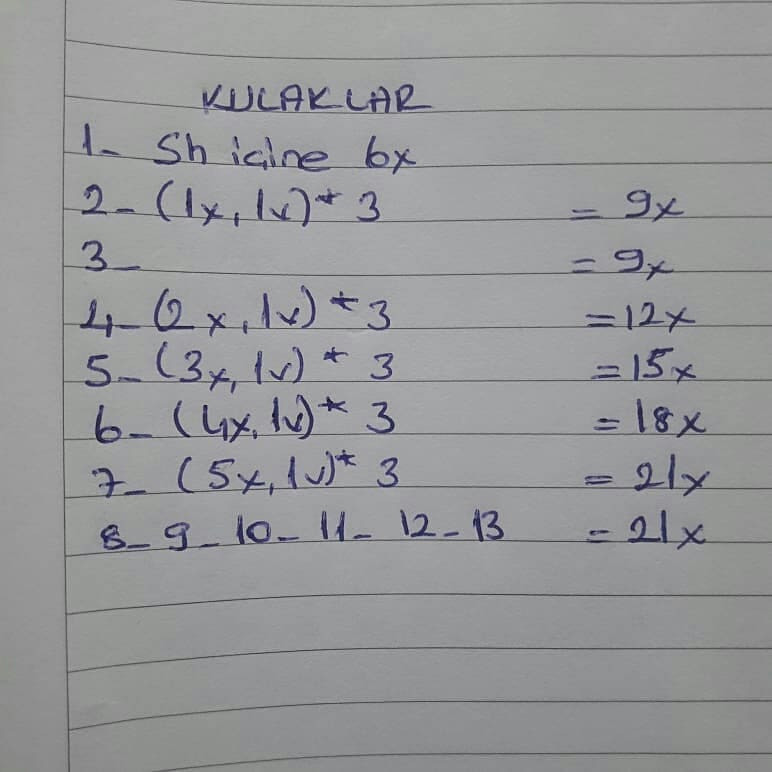 KULAKLAR
1- Sh içine 6x
2- (1x, 1v)* 3 = 9x
3- = 9x
4- (2x, 1v)* 3 = 12x
5- (3x, 1v)* 3 = 15x
6- (4x, 1v)* 3 = 18x
7- (5x, 1v)* 3 = 21x
8- 9- 10- 11- 12- 13 = 21x